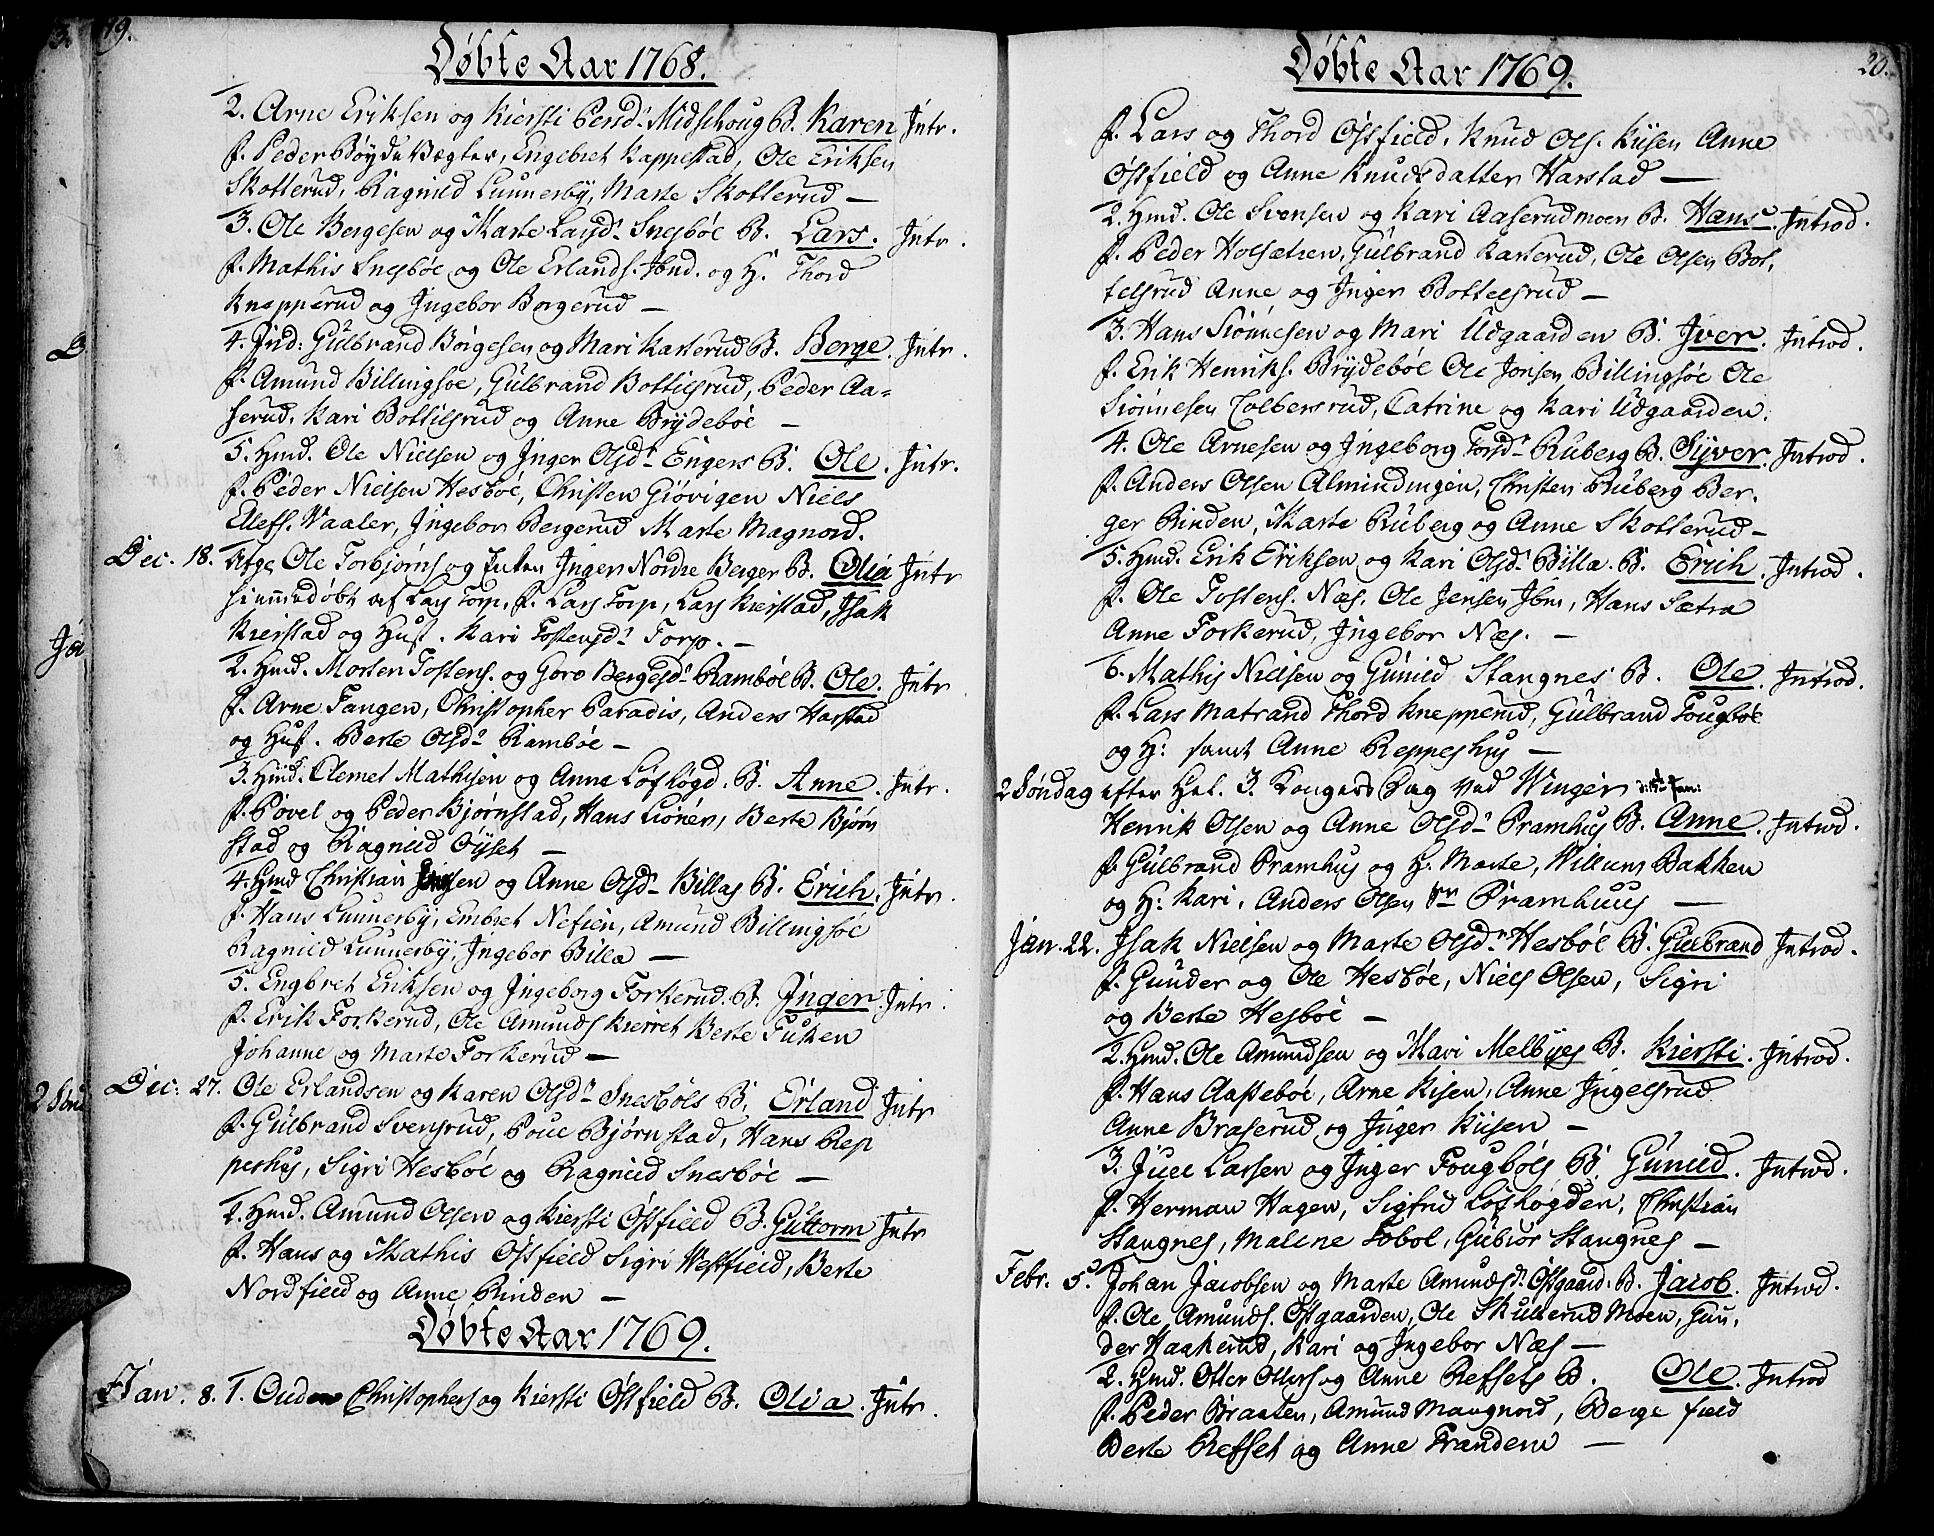 19.
Döbte Aar 1768.
2. Arne Eriksen og Kiersti Persd: Midschoug B. Karen Jntr.
f. Peder Böyde Vægter, Engebret Kappestad, Ole Eriksen
Skotterud, Ragnild Lunnerby, Marte Skotterud —
3. Ole Bergesen og Marte Larsd: Snesböe B. Lars. Jntr.
f. Mathis Snesböe og Ole Erlands. Jbnd. og H. Thord
Knapperud og Jngebor Borgerud —
4. Jnd: Gulbrand Börgesen og Mari Kasterud B. Berge. Jntr.
f. Amund Billingsöe, Gulbrand Bottilsrud, Peder Aa=
serud, Kari Bottilsrud og Anne Brydeböe —
5. Hmd. Ole Nielsen og Jnger Olsd: Engers B. Ole. Jntr.
f. Peder Nielsen Hesböe, Christen Giövigen Niels
Ellefs. Vaaler, Jngebor Bergerud Marte Magnord.
Dec. 18. Afge Ole Torbjörns og Enken Jnger Nordre Berger B. Olia Jntr
hiemmedöbt af Lars Torp, f. Lars Torp, Lars Kierstad, Jsak
Kierstad og Hust. Kari Tostensd: Torp. —
2. Hmd. Morten Tostens. og Goro Bergesd: Ramböe B. Ole. Jntr
f. Arne Tangen, Christopher Paradis, Anders Harstad
og Hust. Berte Olsd: Ramböe —
3. Hmd. Clemet Mathisen og Anne Löfhögd. B. Anne. Jntr.
f. Povel og Peder Björnstad, Hans Lionen, Berte Björn
stad og Ragnild Öyset —
4. Hmd Christian Jensen og Anne Olsd: Billas B. Erich. Jntr.
f. Hans Lunnerby, Embret Nefien, Amund Billingsöe
Ragnild Lunnerby, Jngebor Billa —
5. Engbret Eriksen og Jngeborg Torkerud. B. Jnger. Jntr.
f. Erik Torkerud, Ole Amunds Kierret Berte Tuken
Johanne og Marte Torkerud —
Dec: 27. Ole Erlandsen og Karen Olsd: Snesböls B. Erland Jntr
f. Gulbrand Svensrud, Poul Björnstad, Hans Rep
peshus, Sigri Hesböe og Ragnild Snesböe —
2. Hmd. Amund Olsen og Kiersti Östfield B. Guttorm Jntr
f. Hans og Mathis Östfield Sigri Westfield, Berte
Nordfield og Anne Rinden —
Döbte Aar 1769.
Jan. 8. 1. Ouden Christophers og Kiersti Östfield B. Olia. Jntr.
20.
Döbte Aar 1769.
f. Lars og Thord Östfield, Knud Ols. Kiisen Anne
Östfield og Anne Knudsdatter Harstad —
2. Hmd. Ole Svensen og Kari Aaserudmoen B. Hans. Jntrod.
f. Peder Holsætren, Gulbrand Kasterud, Ole Olsen Bot,
telsrud Anne og Jnger Bottelsrud —
3. Hans Siönnesen og Mari Udgaarden B. Jver. Jntrod.
f. Erik Henriks. Brydeböe Ole Jonsen Billingsöe Ole
Siönnesen Colbersrud, Catrine og Kari Udgaarden.
4. Ole Arnesen og Jngeborg Torsd: Ruberg B. Syver. Jntrod.
f. Anders Olsen Almindingen, Christen Ruberg Ber,
ger Rinden, Marte Ruberg og Anne Skotterud —
5. Hmd. Erik Eriksen og Kari Olsd: Billa. B. Erich. Jntrod.
f. Ole Tostens. Næs. Ole Jensen Jbm, Hans Sætra
Anne Torkerud, Jngebor Næs. —
6. Mathis Nielsen og Gunild Stangnes B. Ole. Jntrod.
f. Lars Matrand Thord Knepperud, Gulbrand Fougböe
og H: samt Anne Reppeshus —
2 Söndag efter Hel. 3. Kongers Dag ved Winger
Henrik Olsen og Anne Olsd: Pramhus B. Anne. Jntrod.
f. Gulbrand Pramhus og H. Marte, Willum Bakken
og H: Kari, Anders Olsen Pramhuus —
Jan. 22. Jsak Nielsen og Marte Olsd: Hesböe B. Gulbrand Jntrod.
f. Gunder og Ole Hesböe, Niels Olsen, Sigri
og Berte Hesböe —
2. Hmd. Ole Amundsen og Mari Melbyes B. Kiersti. Jntrod.
f. Hans Aasteböe, Arne Kisen, Anne Jngelsrud
Anne Braserud og Jnger Kiisen —
3. Juel Larsen og Jnger Fougböls B. Gunild. Jntrod.
f. Herman Hagen, Sigfrid Löfhögden, Christian
Stangnes, Malene Tobol, Gubiör Stangnes —
Febr. 5. Johan Jacobsen og Marte Amundsd. Östgaard. B. Jacob. Jntrod.
f. Ole Amunds. Östgaarden, Ole Skullerud Moen, Gun,
der Haakerud, Kari og Jngebor Næs —
2. Hmd. Otter Otters og Anne Refsets B. Ole. Jntrod
f. Peder Braaten, Amund Maugnord, Berge field
Berte Refset og Anne Tranden —